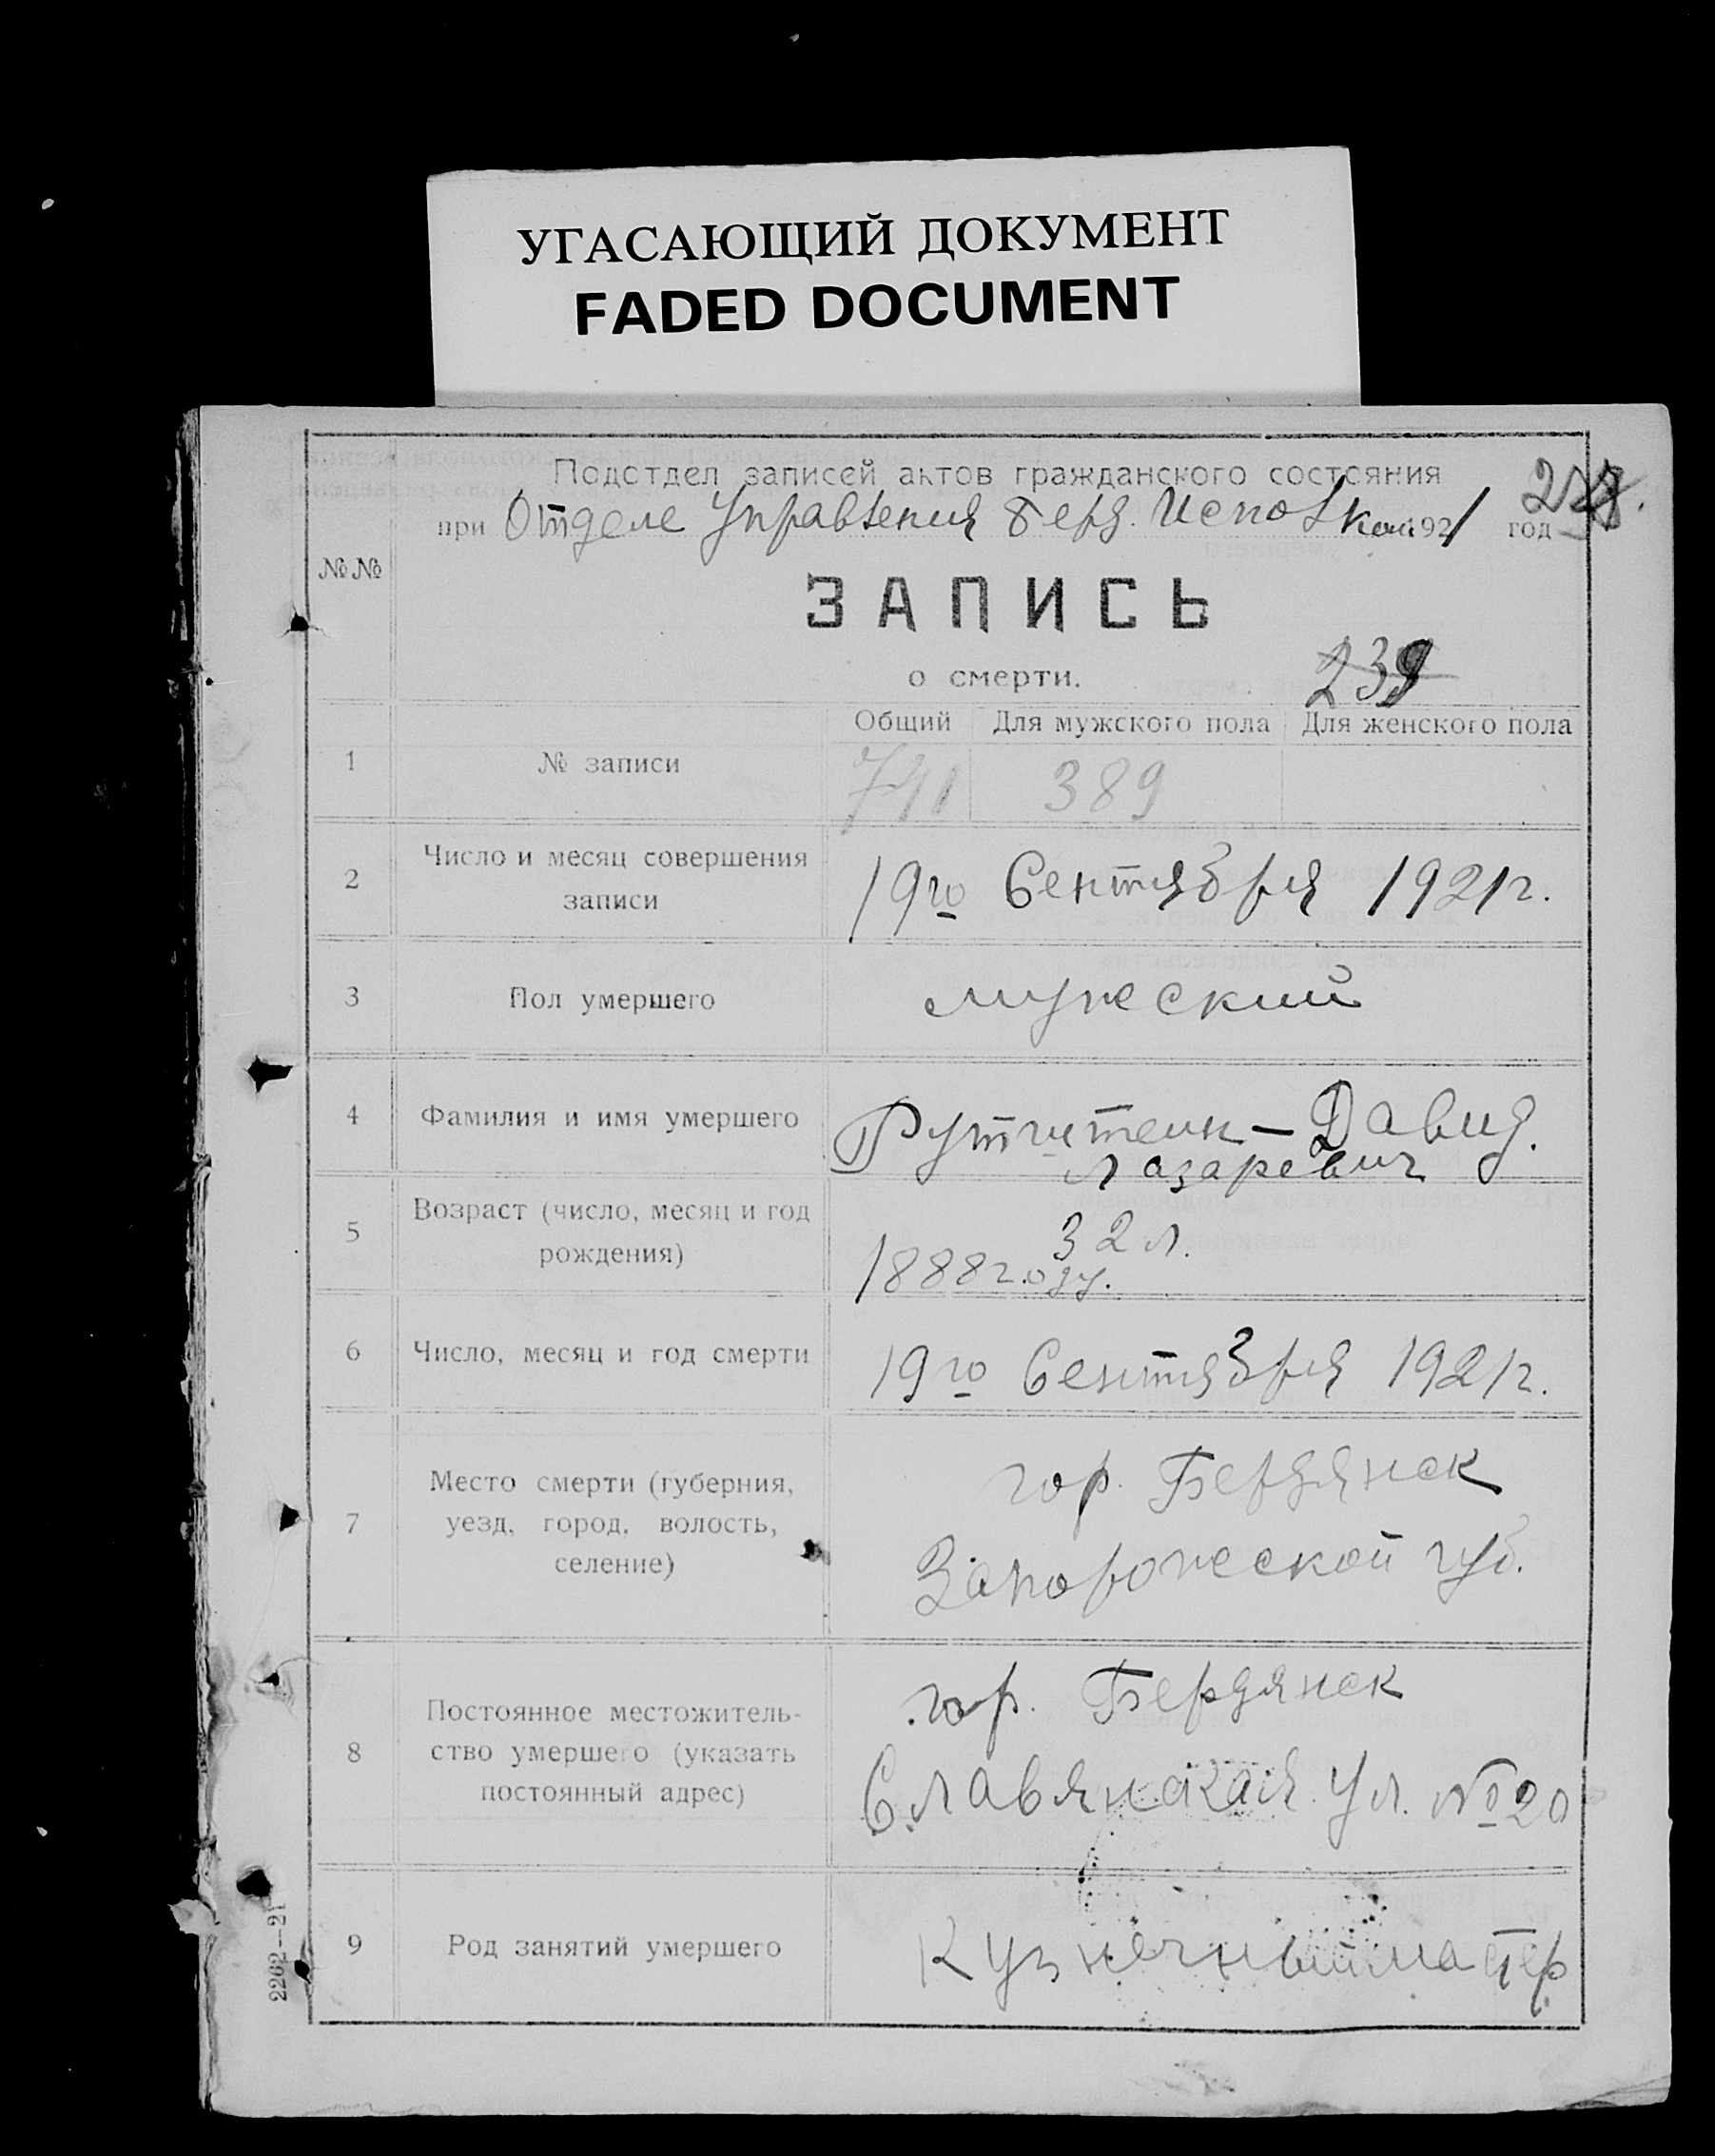 УГАСАЮЩИЙ ДОКУМЕНТ
FADED DOCUMENT
Подотдел записей актов гражданского состояния
при Отделе Управления Берд. Исполком 1921 год
№№
ЗАПИСЬ
о смерти.
239
Общий Для мужского пола Для женского пола
1 № записи 741 389
2 Число и месяц совершения
записи
19го Сентября 1921г.
3 Пол умершего мужеский
4 Фамилия и имя умершего Рутштейн – Давид.
Лазаревич
5 Возраст (число, месяц и год
рождения)
32 л.
1888 году.
6 Число, месяц и год смерти 19го Сентября 1921г.
7 Место смерти (губерния,
уезд, город, волость,
селение)
гор. Бердянск
Запорожеской губ.
8 Постоянное местожитель-
ство умершего (указать
постоянный адрес)
гор. Бердянск
Славянская ул. № 20
9 Род занятий умершего Кузнечный мастер
2262—21